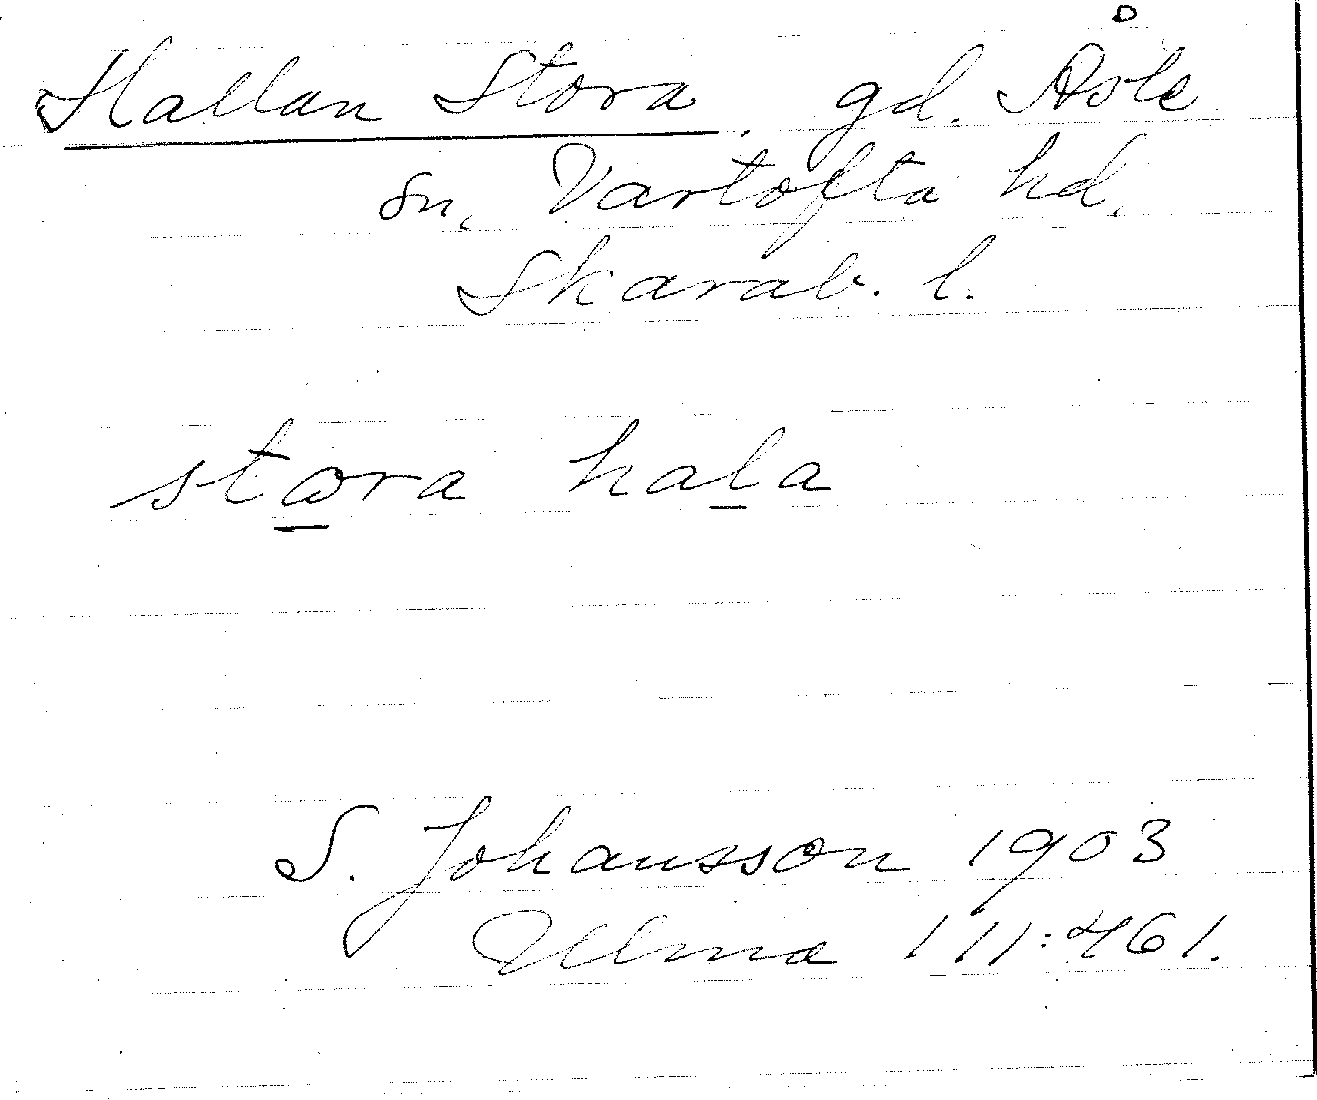 Hallan Stora, gd. Åsle
sn, Vartofta hd,
Skarab. l.
stora hala
S. Johansson 1903
Ulma 111:461.